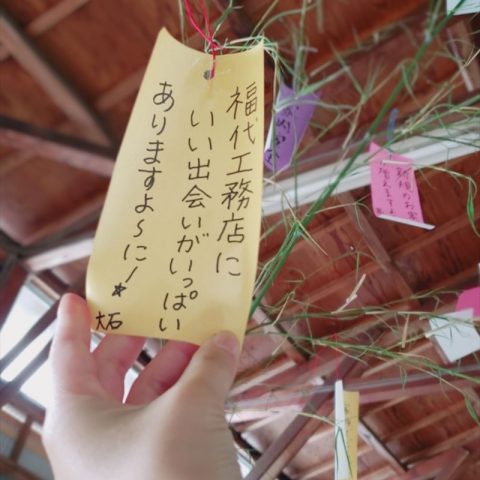 福代工務店に
いい出会いがいっぱい
ありますよ〜に！★
大石
新規のお客
増えます